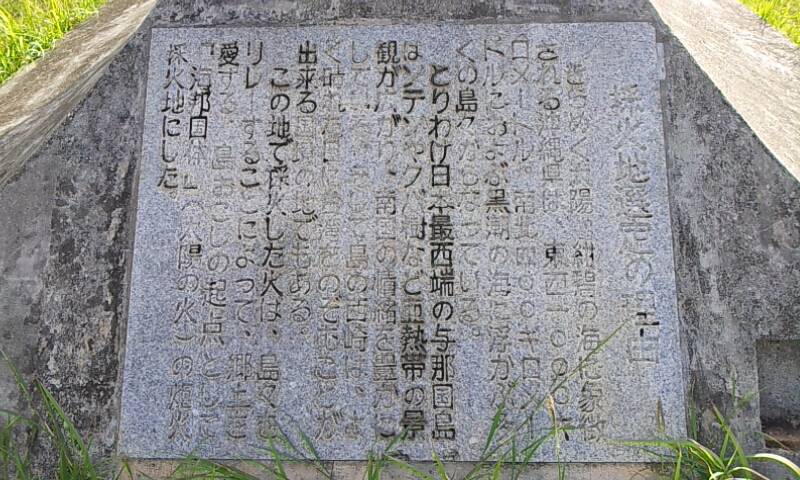 採火地選定の理由
きらめく太陽と紺碧の海に象徴
される沖縄県は、東西一〇〇〇キ
ロメートル、南北四〇〇キロメー
トルにおよぶ黒潮の海に浮かぶ多
くの島々からなっている。
とりわけ日本最西端の与那国島
はソテツやクバ樹など亜熱帯の景
観がひろがり、南国の情緒を豊かに
している。そして島の西崎は、よ
く晴れた日に台湾をのぞむことが
出来る国境の地でもある。
この地で採火した火は、島々を
リレーすることによって、郷土を
愛する「島おこしの起点」とした
「海邦国体」(太陽の火)の炬火
採火地にした。